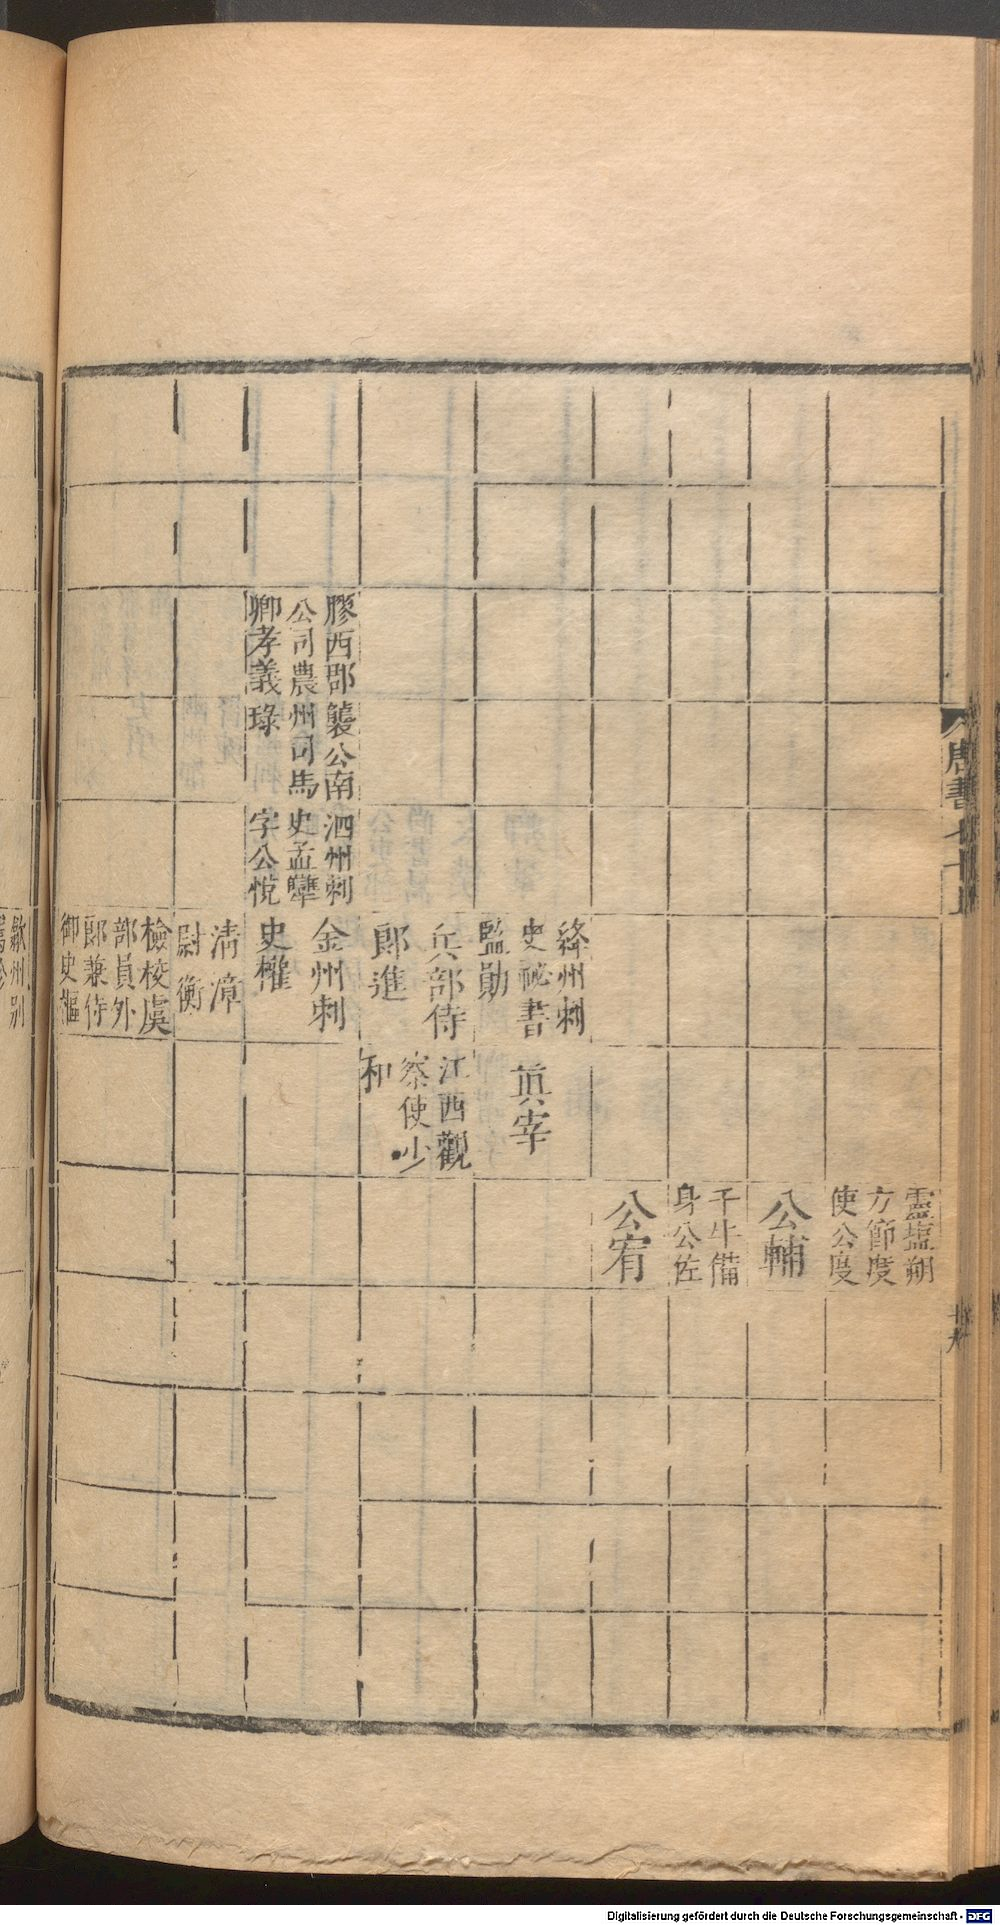 靈塩朔
方節度
使公度
公輔
千牛備
身公佐
公宥
絳州刺
史祕書
監勛
真宰
兵部侍
郎進
江西觀
察使少
和
膠西郡
公司農
卿孝義
襲公南
州司馬
琭
泗州刺
史孟犨
字公悅
金州刺
史權
清漳
尉衡
檢校虞
部員外
郎兼侍
御史樞
唐書七十上
十六
歙州別
Digitalisierung gefördert durch die Deutsche Forschungsgemeinschaft - DFG